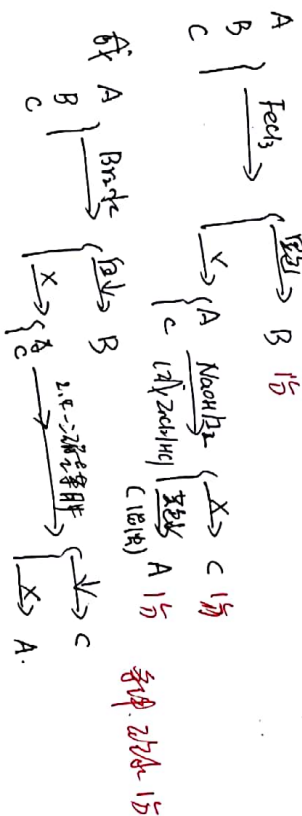 A
B
C } FeCl₃ → { 显色 → B 1分
× → { A
C NaOH/I₂ → { × → C 1分
(或 ZnCl₂/HCl) 黄色↓ → A 1分
或 A
B
C } Br₂水 → { 白↓ → B
× → { A
C 2,4-二硝基苯肼 → { ↓ → C
× → A.
1分